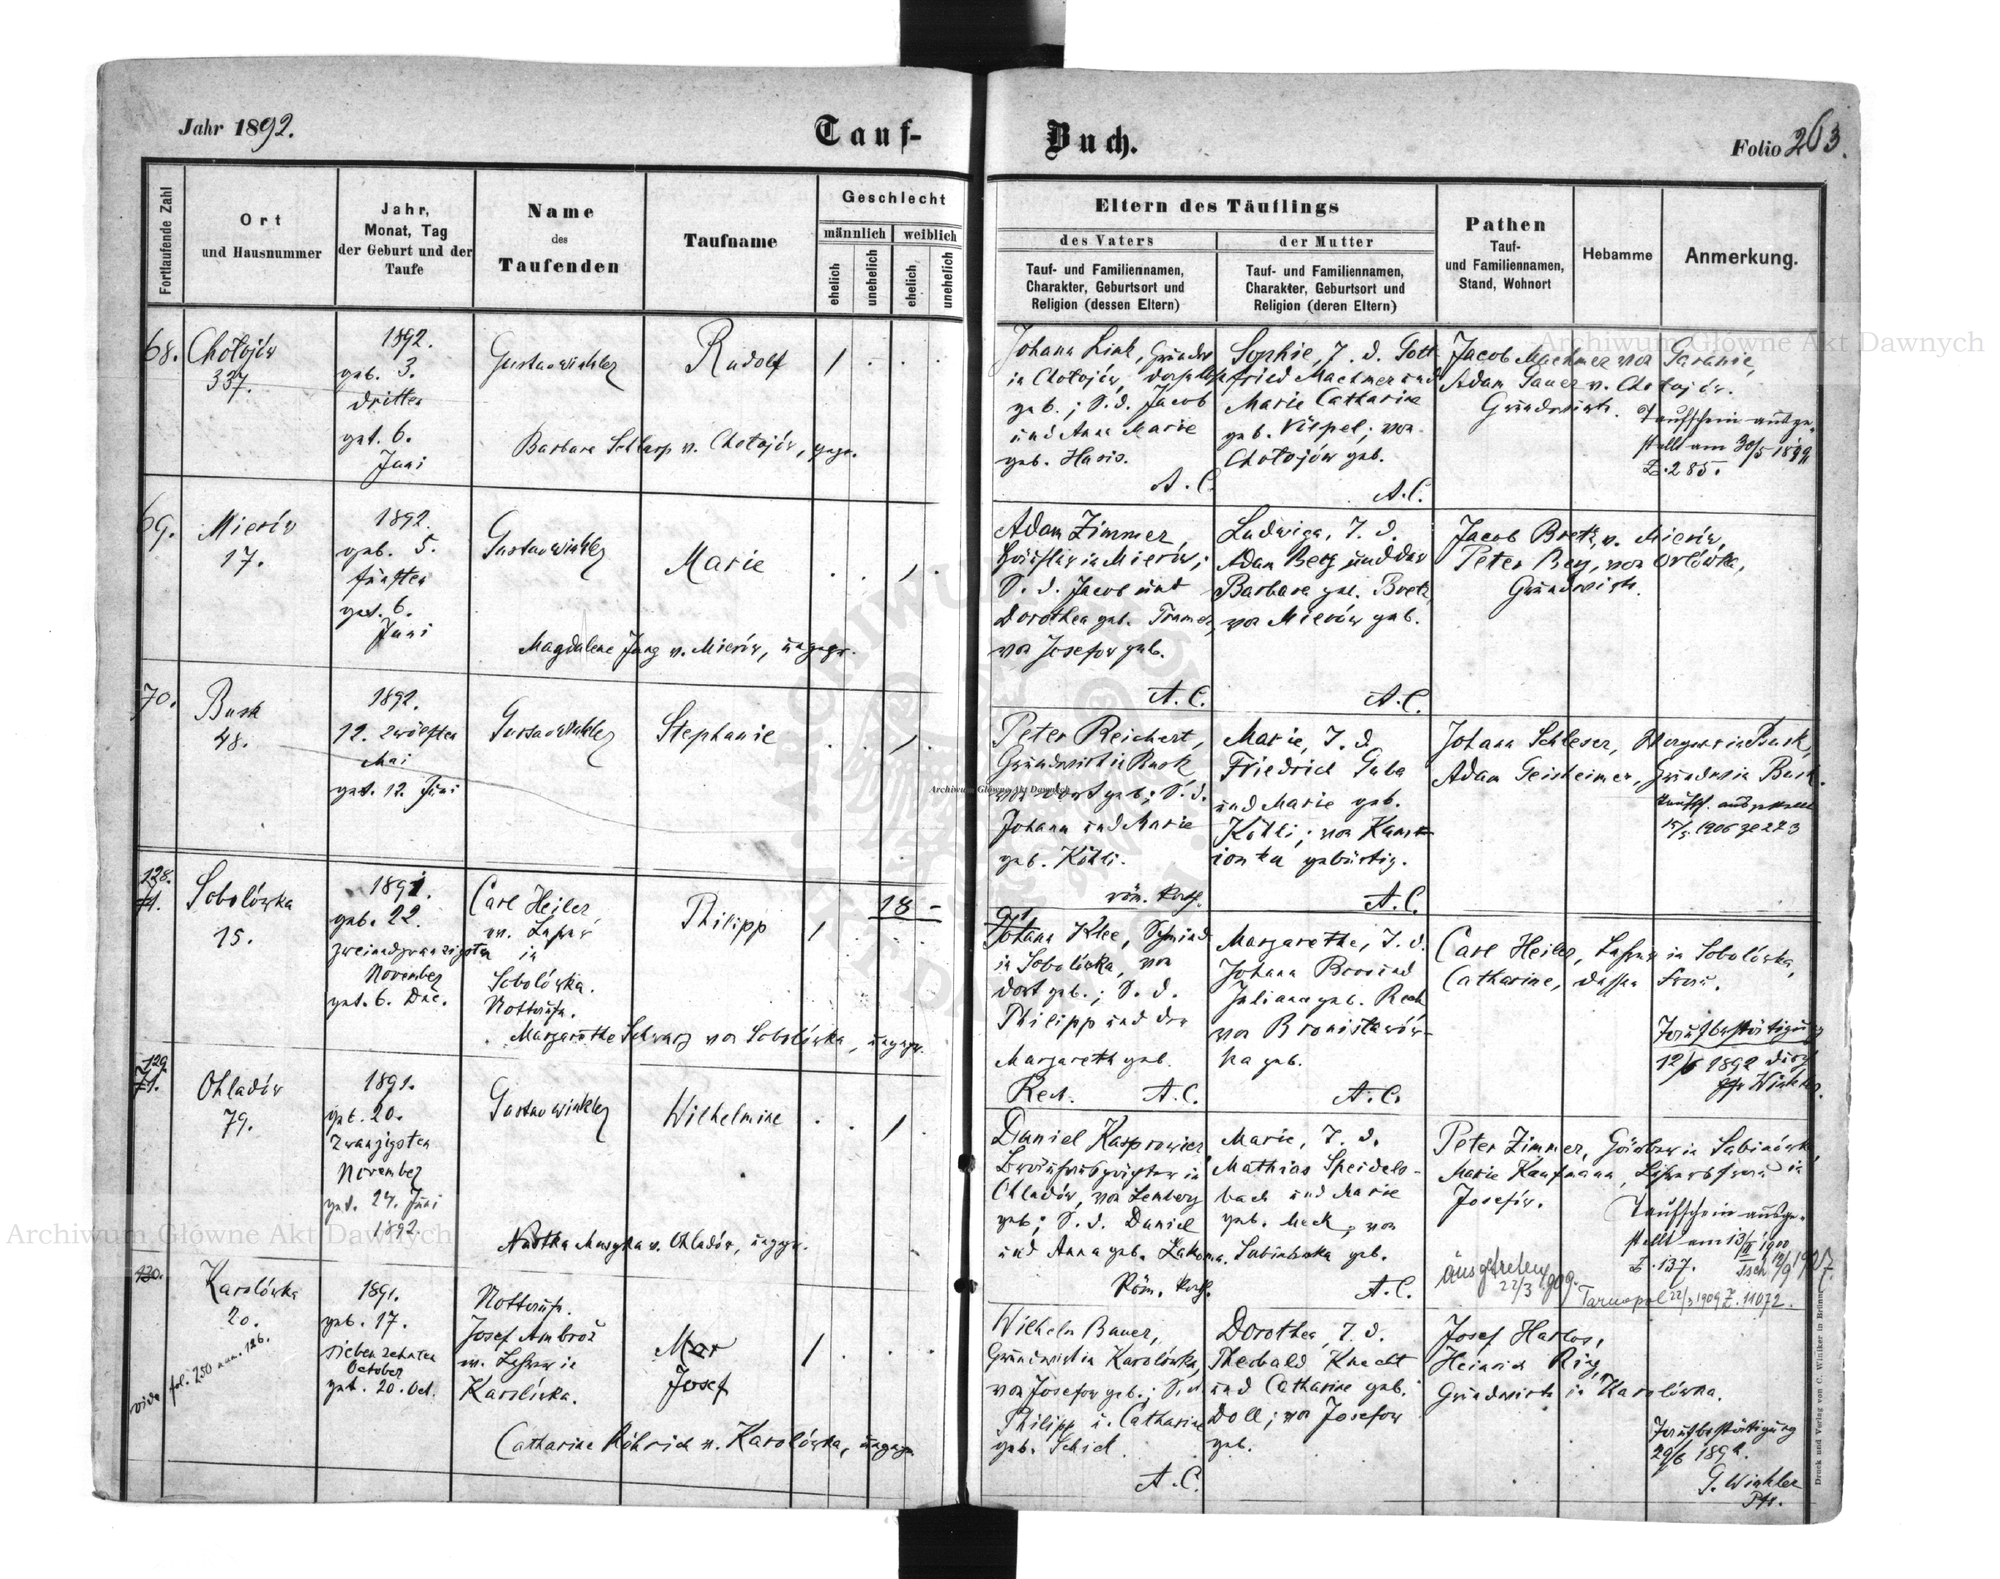 Jahr 1892.
Tauf-
Buch.
Folio 263.
Fortlaufende Zahl
Ort
und Hausnummer
Jahr,
Monat, Tag
der Geburt und der
Taufe
Name
des
Taufenden
Taufname
Geschlecht
männlich
weiblich
ehelich
unehelich
ehelich
unehelich
Eltern des Täuflings
des Vaters
Tauf- und Familiennamen,
Charakter, Geburtsort und
Religion (dessen Eltern)
der Mutter
Tauf- und Familiennamen,
Charakter, Geburtsort und
Religion (deren Eltern)
Pathen
Tauf-
und Familiennamen,
Stand, Wohnort
Hebamme
Anmerkung.
68.
Chołojów
337.
1892.
geb. 3.
dritten
get. 6.
Juni
Gustav Winkler
Rudolf
Barbara Schlarp v. Chołojów, gepr.
Johann Link, Grundw.
in Chołojów, daselbst
geb.; S. d. Jacob
und Anna Marie
geb. Haris.
A. C.
Sophie, T. d. Gott
fried Machmer und
Marie Catharine
geb. Vispel; von
Chołojów geb.
A. C.
Jacob Machmer von
Adam Sauer v. Chołojów.
Grundwirth.
Taufschein ausge-
stellt am 30/5 1899
Z. 285.
69.
Mierów
17.
1892.
geb. 5.
fünften
get. 6.
Juni
Gustav Winkler
Marie
Magdalene Jung v. Mierów, ungepr.
Adam Zimmer,
in Mierów;
S. d. Jacob und
Dorothea geb.
von Josefow geb.
A. C.
Ludwiga, T. d.
Adam Berg und der
Barbara geb. Bretz,
von Mierów geb.
A. C.
Jacob Bretz, v. Mierów,
Peter Berg, von Orlówka,
Grundwirth.
70.
Busk
48.
1892.
12. zwölften
Mai
get. 12. Juni
Gustav Winkler
Stephanie
Peter Reichert,
Grundwirt in Busk,
von dort geb.; S. d.
Johann und Marie
geb. Köhli.
röm. kath.
Marie, T. d.
Friedrich Guba
und Marie geb.
Köhli; von Kamionka gebürtig.
A. C.
Johann Schleser, in Busk,
Adam Geisheimer, Grundw. in Busk.
Taufsch. ausgestellt
1906 Z 273
128.
71.
Sobolówka
15.
1891.
geb. 22.
zweiundzwanzigsten
November
get. 6. Dec.
Carl Heiler,
ev. Lehrer
in
Sobolówka.
Nottaufe.
Philipp
18 -
Margarethe Schwarz von Sobolówka, ungepr.
Johann Klee,
in Sobolówka, von
dort geb.; S. d.
Philipp und der
Margareth geb.
Rech. A. C.
Margarethe, T. d.
Johann Bros und
Juliana geb. Rech
von Bronisławówka geb.
A. C.
Carl Heiler, Lehrer in Sobolówka,
Catharine, dessen Frau.
Taufbestätigung
12/6 1892 durch
Pfr Winkler.
129.
71.
Ohladów
79.
1891.
geb. 20.
zwanzigsten
November
get. 24. Juni
1892.
Gustav Winkler
Wilhelmine
Nastka Muzyka v. Ohladów, ungepr.
Daniel Kasprowicz
in
Ohladów, von Lemberg
geb; S. d. Daniel
und Anna geb.
Röm. kath.
Marie, T. d.
Mathias Speidels-
bach und Marie
geb. Mack, von
Sabinówka geb.
A. C.
Peter Zimmer, in Sabinówka,
Marie Kaufmann, Lehrersfrau in
Josefów.
Taufschein ausge-
stellt am 13/II 1900
Z. 137.
ausgetreten
22/3 909.
Tarnopol 22/3 1909 Z. 11072.
130.
Karolówka
20.
vide fol. 250 num. 126.
1891.
geb. 17.
siebenzehnten
October
get. 20. Oct.
Nottaufe.
Josef Ambrož
ev. Lehrer in
Karolówka.
Josef
Catharine Röhrich v. Karolówka, ungepr.
Wilhelm Bauer,
Grundwirt in Karolówka,
von Josefow geb.; S. d.
Philipp u. Catharine
geb. Schick.
A. C.
Dorothea, T. d.
Theobald Knecht
und Catharine geb.
Doll; von Josefow
geb.
Josef Harlos,
Heinrich Ring,
Grundwirth in Karolówka.
Taufbestätigung
29/6 1892.
G. Winkler
Pfr.
Druck und Verlag von C. Winiker in Brünn.
Archiwum Główne Akt Dawnych
Archiwum Główne Akt Dawnych
Archiwum Główne Akt Dawnych